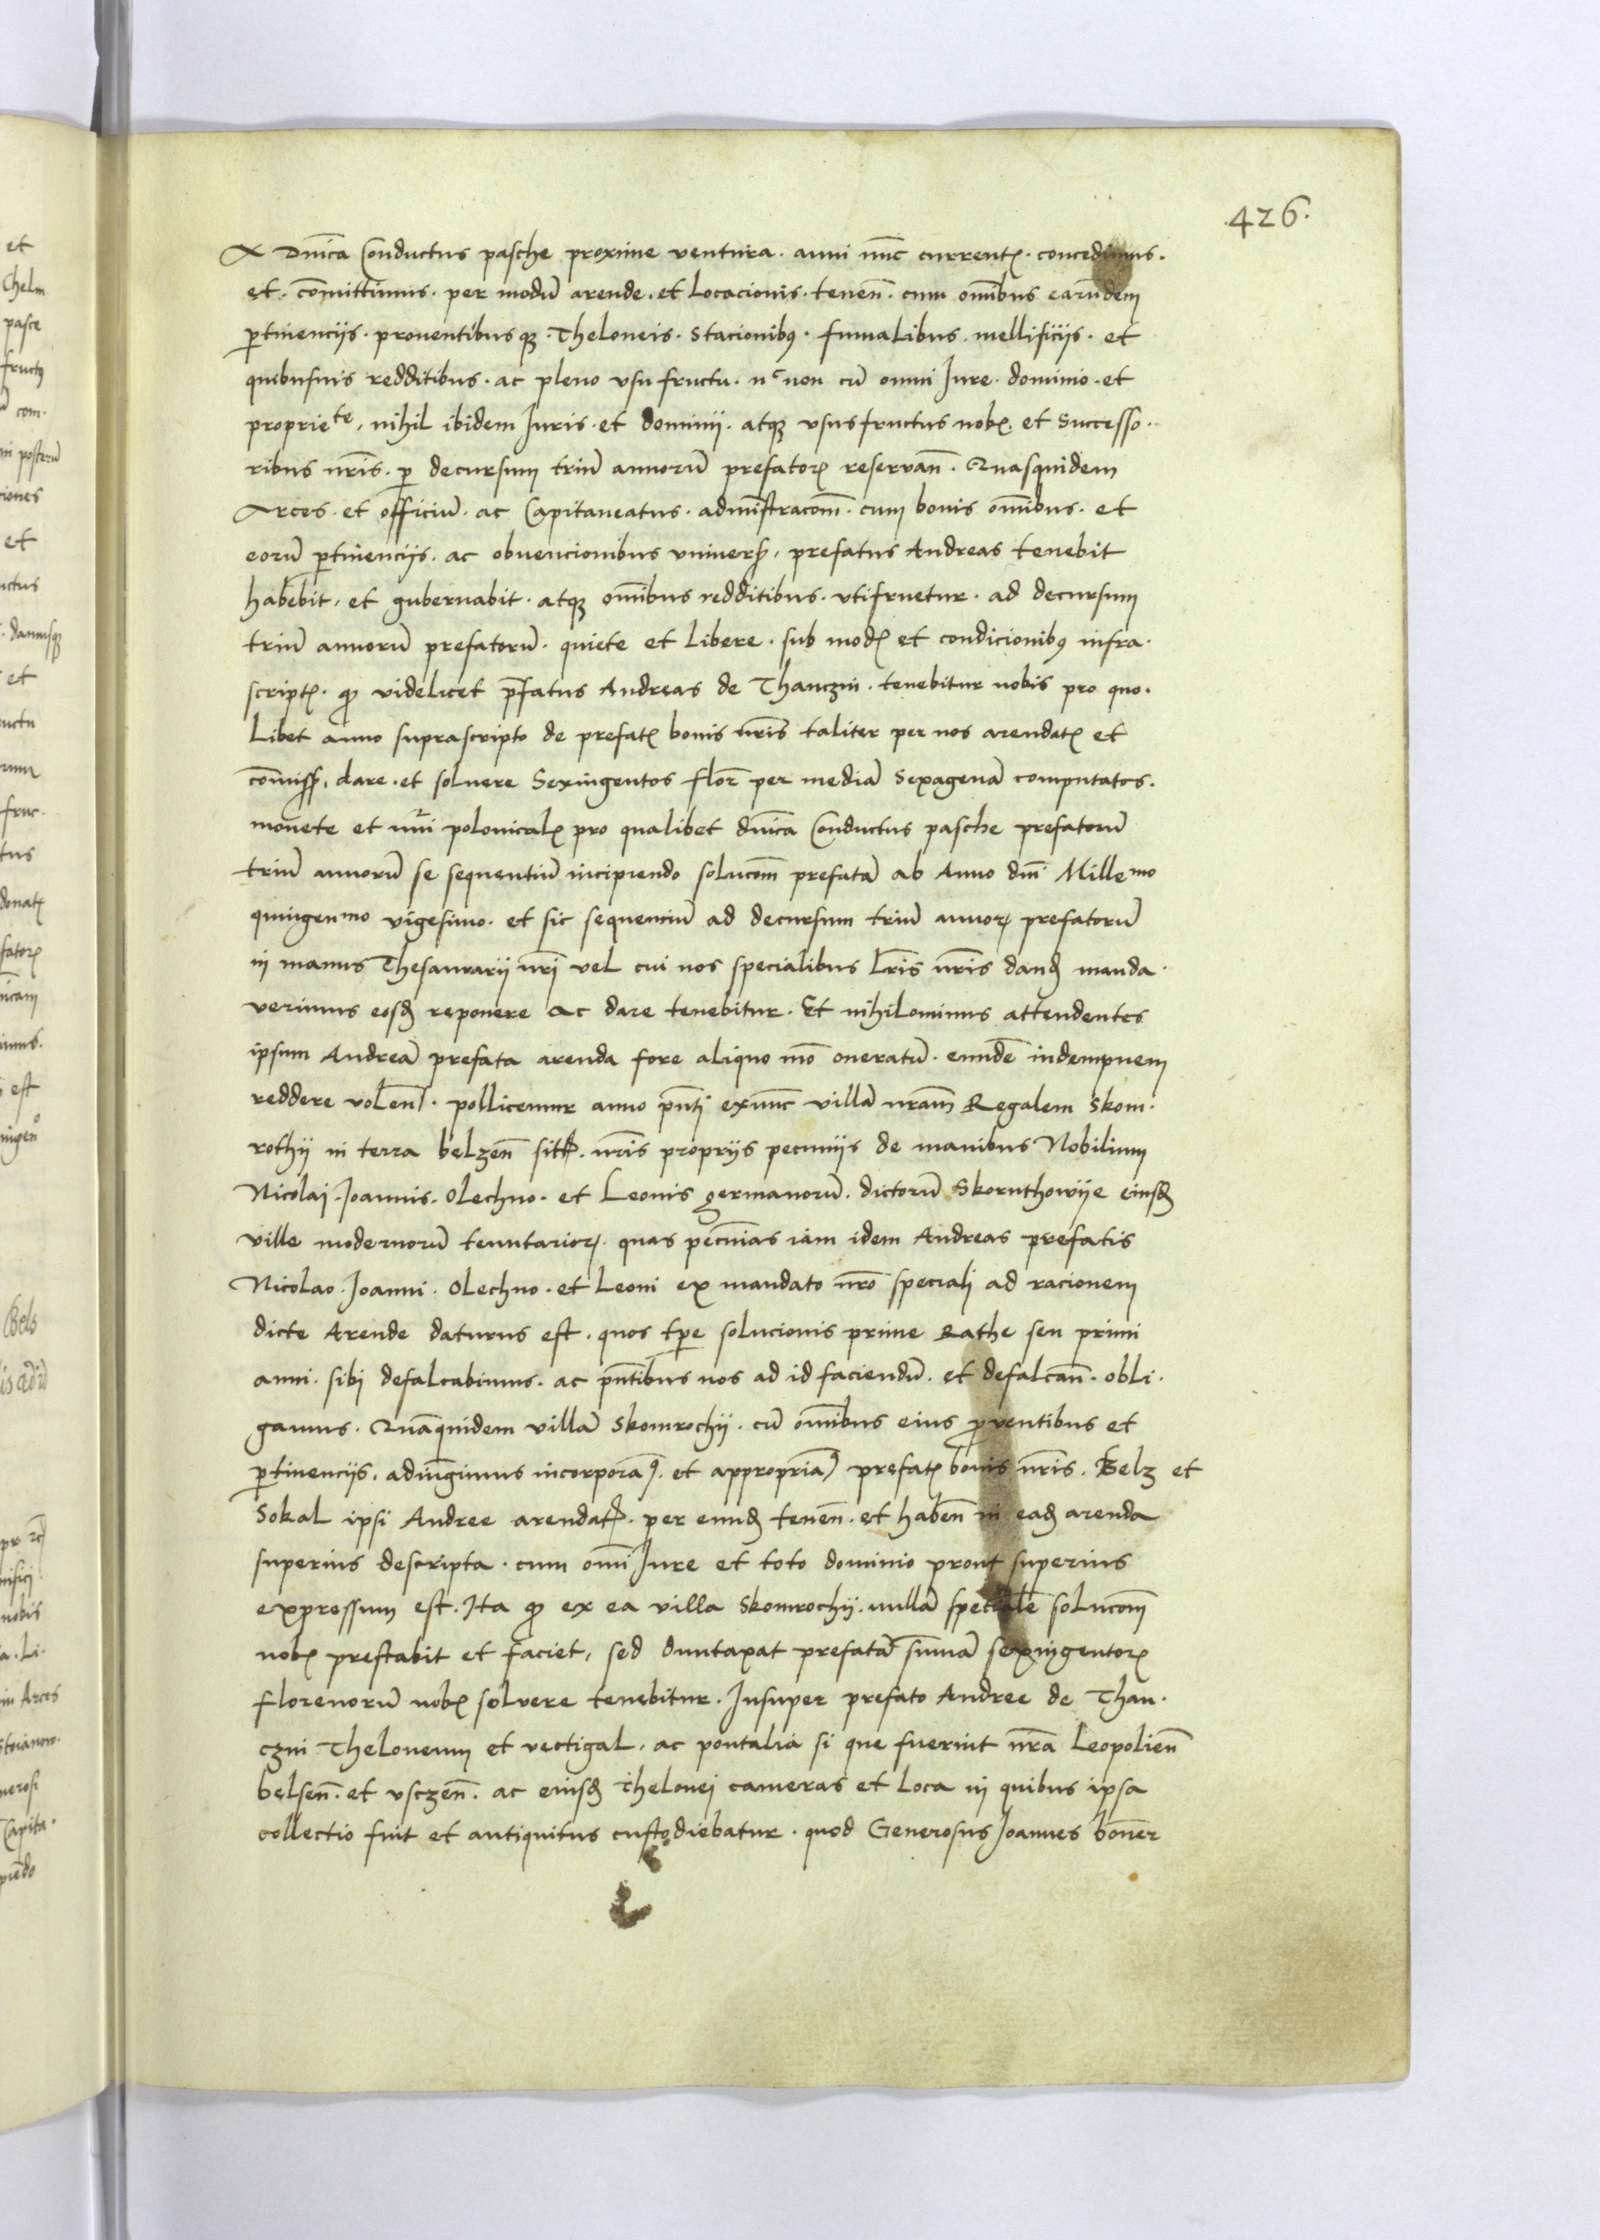 426.
A Dnica Conductus pasche proxime ventura. anni nunc currentꝭ. concedimus.
et. comittimus. per modū arende. et Locacionis. tenen̄. cum om̄ibus earundem
ꝑtinenciis. proventibusqꝫ. Theloneis. Stacionibꝰ. fumalibus. mellificiis. et
quibusuis redditibus. ac pleno vsufructu. nᶜ non cū omni Iure. dominio. et
proprieᵗᵉ, nihil ibidem Iuris. et dominii. atqꝫ vsusfructus nobꝭ. et Successo.
ribus nr̄is. ꝑ decursum triū annorū prefatorꝭ reservan̄. Quasquidem
Arces. et officiū. ac Capitaneatus. administracōm̄. cum bonis om̄ibus. et
eorū ꝑtinenciis. ac obuencionibus vniversꝭ, prefatus Andreas tenebit
habebit, et gubernabit. atqꝫ om̄ibus redditibus. vtifruetur. ad decursum
triū annorū prefatorū. quiete et Libere. sub modꝭ et condicionibꝰ infra.
scriptꝭ. qꝫ videlicet p̄fatus Andreas de Thanczin. tenebitur nobis pro quo.
Libet anno suprascripto de prefatꝭ bonis nr̄is taliter per nos arendatꝭ et
com̄issꝭ, dare. et soluere Sexingentos flor̄ per mediā Sexagenā computatos.
monete et nu͂i polonicalꝭ pro qualibet dnīca Conductus pasche prefatorū
triū annorū se sequentiū incipiendo solucōm̄ prefatā ab Anno dnī Milleᵐᵒ
quingenᵐᵒ vigesimo. et sic sequenciū ad decursum triū annorꝫ prefatorū
in manus Thesaurarii nr̄i vel cui nos specialibus Lr̄is nr̄is dandꝭ manda.
verimus eosdꝭ reponere Ac dare tenebitur. Et nihilominus attendentes
ipsum Andreā prefata arenda fore aliquo mō oneratū. eundē indempnem
reddere volenꝭ. pollicemur anno pn̄ti exnunc villā nr̄am Regalem Skom.
rothy in terra belzen̄ sitꝭ. nr̄is propriis pecuniis de manibus Nobilium
Nicolai. Joannis. Olechno. et Leonis germanorū. dictorū Skornthowije eiusdꝭ
ville modernorū tenutariorꝫ. quas pecūnias iam idem Andreas prefatis
Nicolao. Joanni. Olechno. et Leoni ex mandato nr̄o speciali ad racionem
dicte Arende daturus est. quos tꝑe solucionis prime Rathe seu primi
anni. sibi defalcabimus. ac pn̄tibus nos ad id faciendū. et defalcan̄. obli.
gamus. Quāquidem villā Skomrochii. cū om̄ibus eius proventibus et
ꝑtinenciis. adiungimus incorporaꝰ. et appropriaꝰ prefatꝭ bonis nr̄is. Belz et
Sokal ipsi Andree arendatꝭ. per eundꝭ tenen̄. et haben̄ in eadꝭ arenda
superius descripta. cum omī Iure et toto dominio prout superius
expressum est. Ita qꝫ ex ea villa Skomrochii. nullā specialē solucōm̄
nobꝭ prestabit et faciet, sed duntaxat prefatā sūmā sexingentorꝭ
florenorū nobꝭ solvere tenebitur. Insuper prefato Andree de Than.
czin Theloneum et vectigal. ac pontalia si que fuerint nr̄a Leopolien̄
belsen̄. et vsczen̄. ac eiusdꝭ Thelonei cameras et Loca in quibus ipsa
collectio fuit et antiquitus custodiebatur. quod Generosus Joannes boner